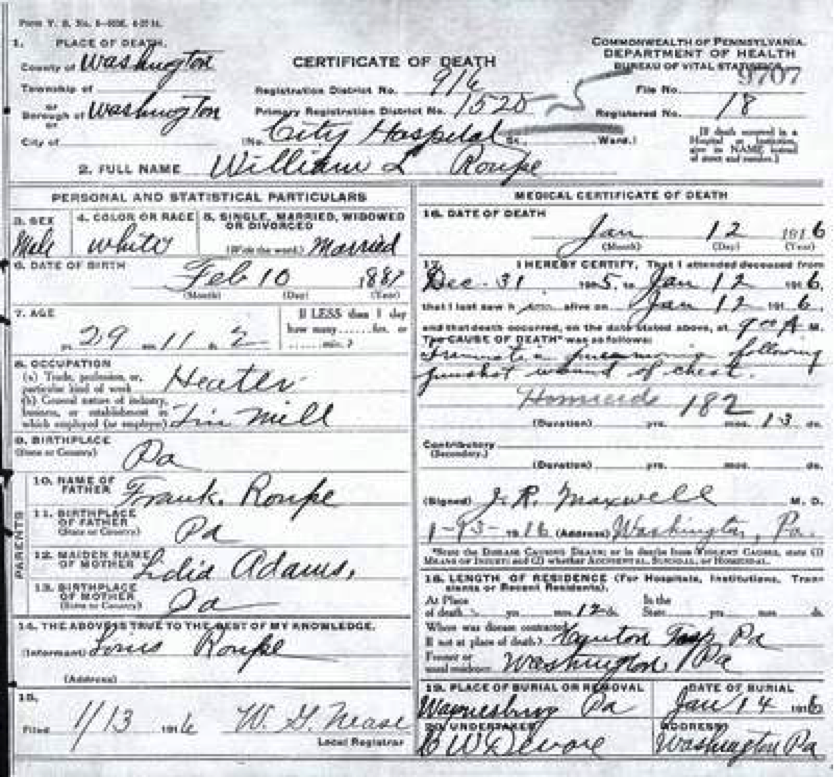 Form V. S. No.
1. PLACE OF DEATH.
County of Washington
Township of
or
Borough of Washington
or
City of
CERTIFICATE OF DEATH
Registration District No. 916
Primary Registration District No. 1520
(No. City Hospital St., Ward.)
COMMONWEALTH OF PENNSYLVANIA.
DEPARTMENT OF HEALTH
BUREAU OF VITAL STATISTICS
File No. 9707
Registered No. 18
[If death occurred in a
Hospital or Institution,
give its NAME instead
of street and number.]
2. FULL NAME William L Roupe
PERSONAL AND STATISTICAL PARTICULARS
3. SEX
Male
4. COLOR OR RACE
white
5. SINGLE, MARRIED, WIDOWED
OR DIVORCED
(Write the word.) Married
6. DATE OF BIRTH
Feb 10 1887
(Month) (Day) (Year)
7. AGE
29 11 2
If LESS than 1 day
how many......hrs. or
......min.?
8. OCCUPATION
(a) Trade, profession, or,
particular kind of work Heater
(b) General nature of industry,
business, or establishment in
which employed (or employer) Tin Mill
9. BIRTHPLACE
(State or Country)
Pa
PARENTS
10. NAME OF
FATHER Frank Roupe
11. BIRTHPLACE
OF FATHER
(State or Country) Pa
12. MAIDEN NAME
OF MOTHER Lidia Adams,
13. BIRTHPLACE
OF MOTHER
(State or Country) Pa
14. THE ABOVE IS TRUE TO THE BEST OF MY KNOWLEDGE.
(Informant) Louis Roupe
(Address)
15.
Filed 1/13 1916 W. G. Nease
Local Registrar
MEDICAL CERTIFICATE OF DEATH
16. DATE OF DEATH
Jan 12 1916
(Month) (Day) (Year)
17. I HEREBY CERTIFY, That I attended deceased from
Dec. 31 1915, to Jan 12 1916,
that I last saw h alive on Jan 12 1916,
and that death occurred, on the date stated above, at 9 00 A M.
The CAUSE OF DEATH* was as follows:
pneumonia following
gunshot wound of chest
Homicide 182
(Duration) yrs. mos. 13 ds.
Contributory
(Secondary.)
(Duration) yrs. mos. ds.
(Signed) J. R. Maxwell M. D.
1916 (Address) Washington, Pa.
*State the DISEASE CAUSING DEATH; or in deaths from VIOLENT CAUSES, state (1)
MEANS OF INJURY; and (2) whether ACCIDENTAL, SUICIDAL, or HOMICIDAL.
18. LENGTH OF RESIDENCE (For Hospitals, Institutions, Tran-
sients or Recent Residents).
At Place
of death yrs. mos. 12 ds.
In the
State yrs. mos. ds.
Where was disease contracted
If not at place of death? Twp Pa
Former or
usual residence Washington Pa
19. PLACE OF BURIAL OR REMOVAL
Waynesburg Pa
DATE OF BURIAL
Jan 14 1916
20. UNDERTAKER
C W Devore
ADDRESS
Washington Pa